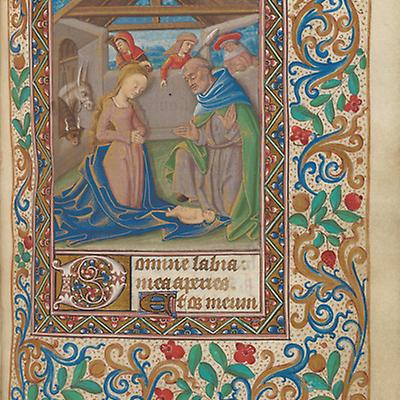 Domine labia
mea aperies
Et os meum